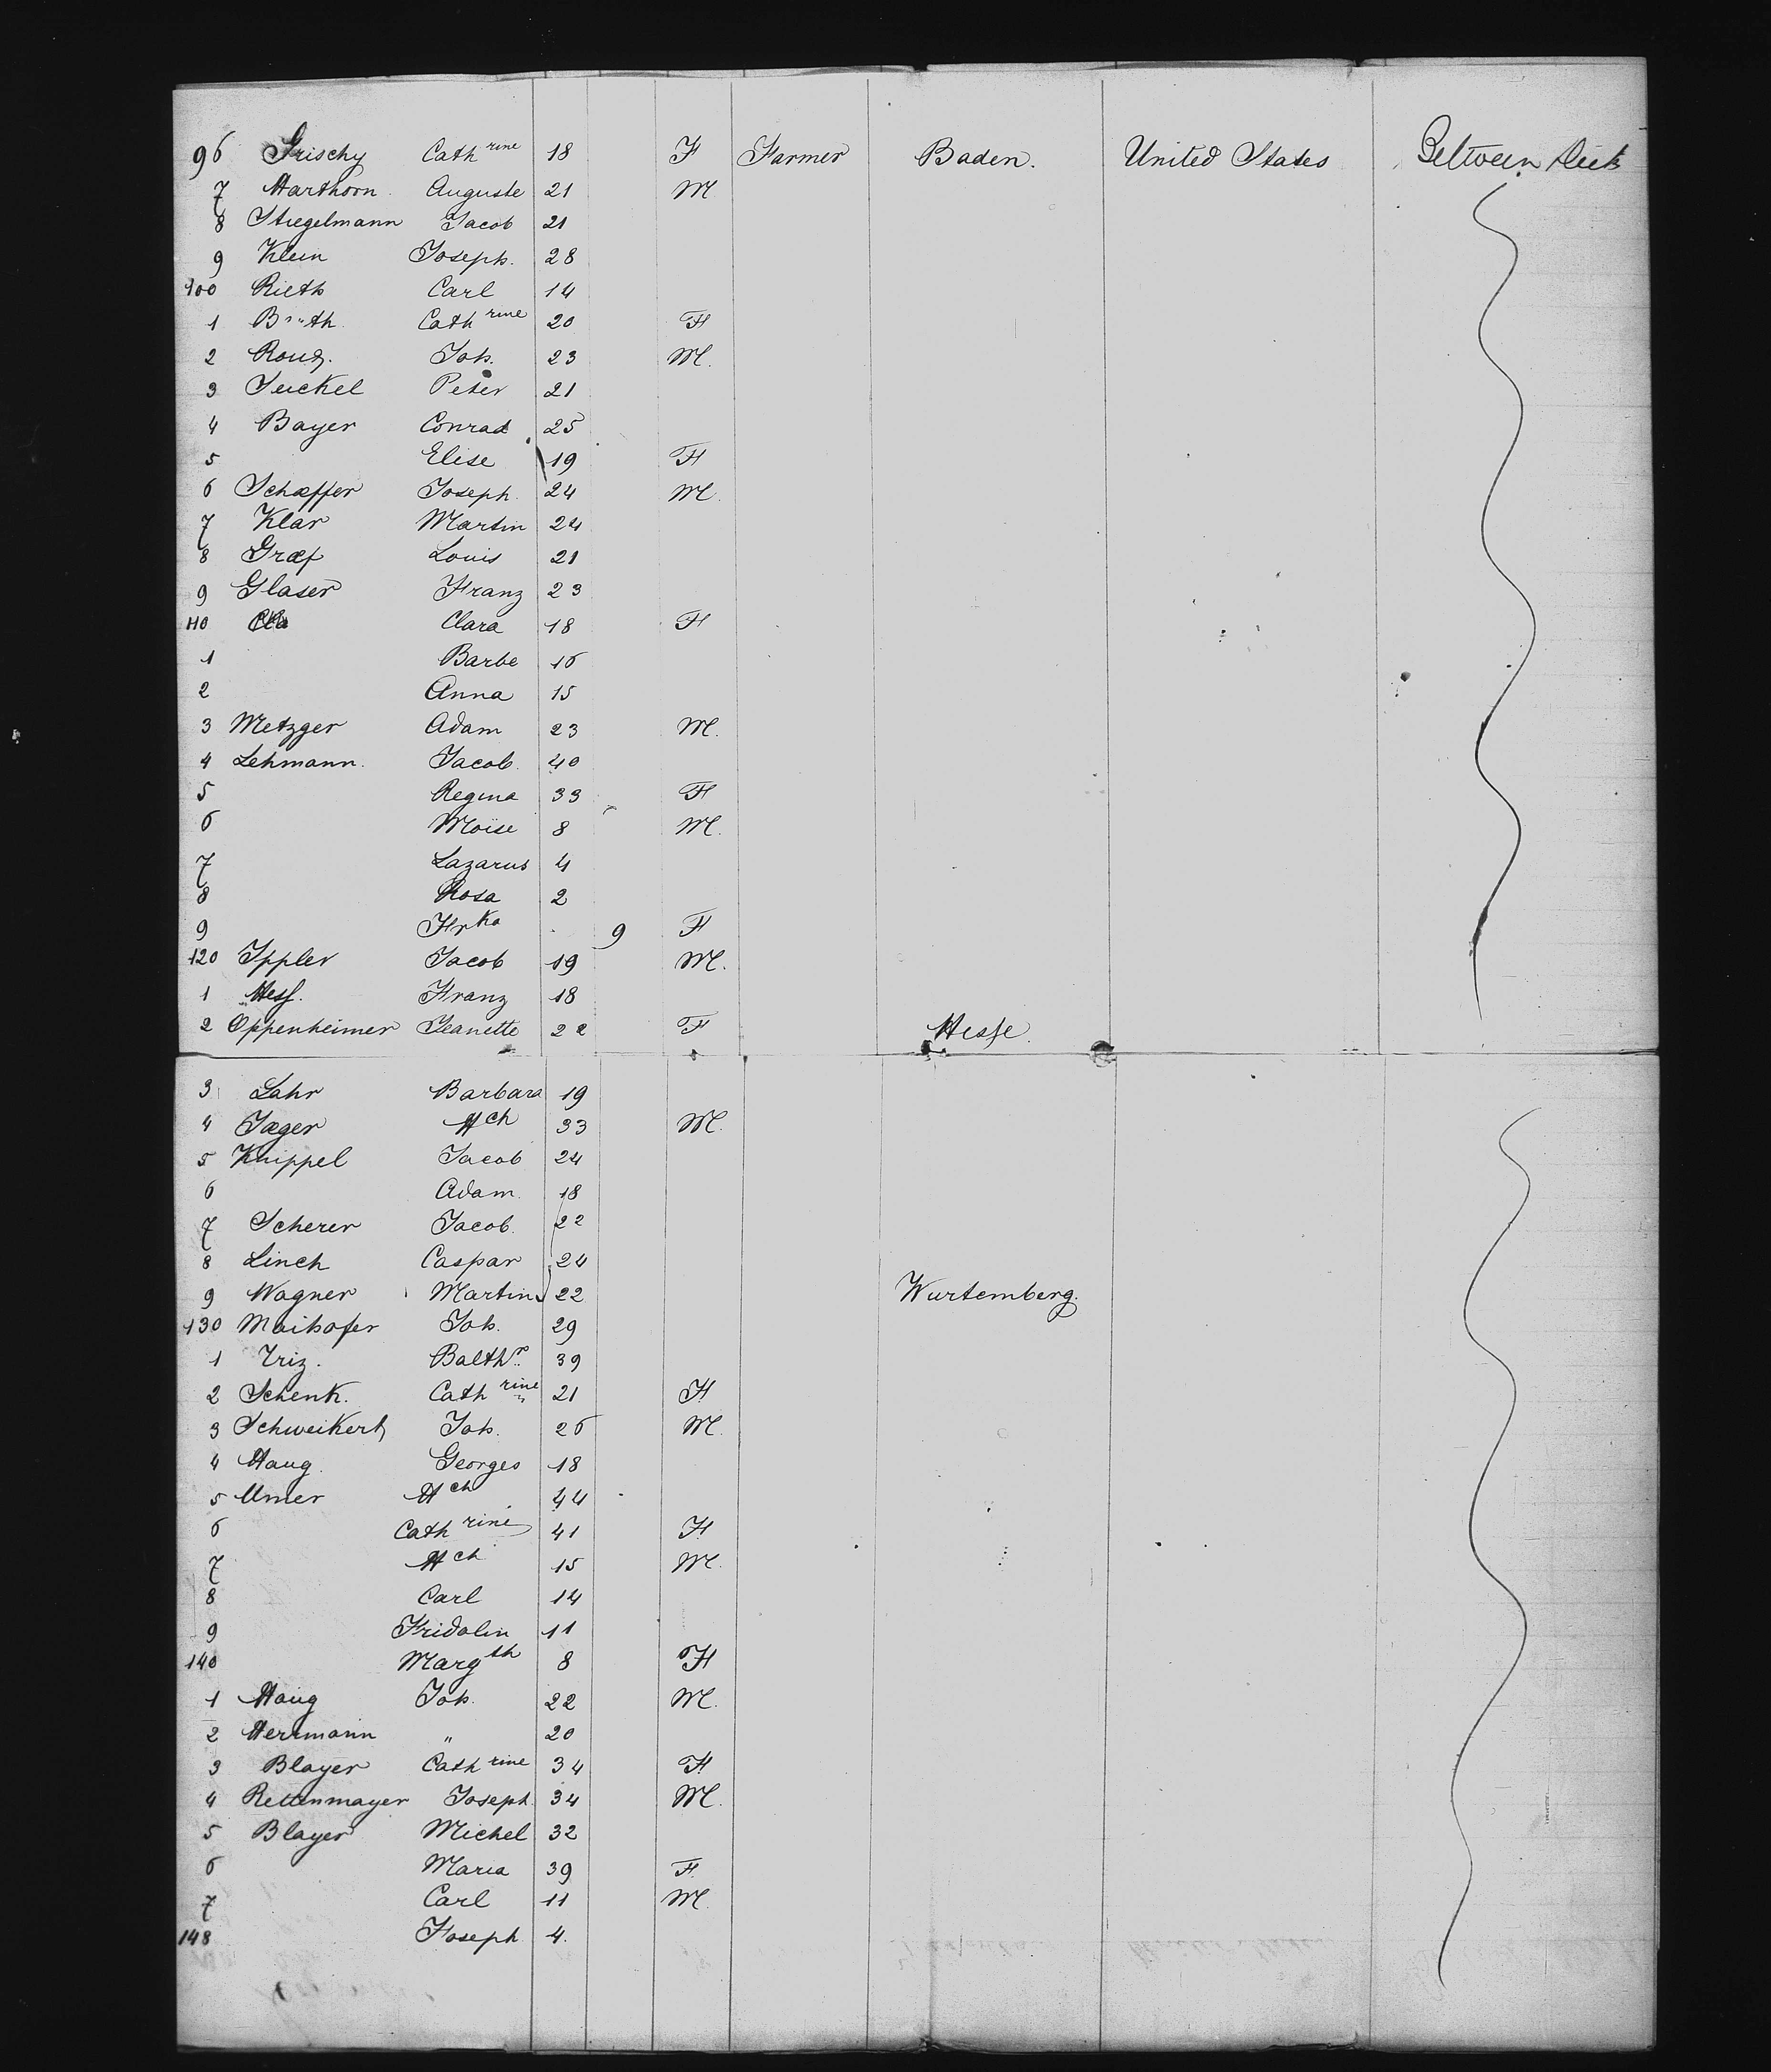 96 Frischy Cathrine 18 F Farmer Baden. United States Between Deck
7 Harthorn Auguste 21 M
8 Stiegelmann Jacob 21
9 Klein Joseph. 28
100 Rieth Carl 14
1 Cathrine 20 F
2 Joh. 23 M.
3 Seickel Peter 21
4 Bayer Conrad 25
5 Elise 19 F
6 Schæffer Joseph 24 M.
7 Klar Martin 24
8 Græf Louis 21
9 Glaser Franz 23
110 Clara 18 F
1 Barbe 16
2 Anna 15
3 Metzger Adam 23 M.
4 Lehmann. Jacob. 40
5 Regina 33 F
6 Moïse 8 M.
7 Lazarus 4
8 Rosa 2
9 Frka 9 F
120 Ippler Jacob 19 M.
1 Hess. Franz 18
2 Oppenheimer Jeanette 22 F Hesse.
3 Lahr Barbara 19
4 Jæger Hch 33 M.
5 Knippel Jacob 24
6 Adam. 18
7 Scherer Jacob. 22
8 Linch Caspar 24
9 Wagner Martin 22 Wurtemberg.
130 Maihofer Joh. 29
1 Balthr. 39
2 Schenk. Cathrine 21 F
3 Schweikert Joh. 26 M.
4 Haug Georges 18
5 Ulmer Hch 44
6 Cathrine 41 F
7 Hch 15 M.
8 Carl 14
9 Fridolin 11
140 Margth 8 F
1 Haug Joh. 22 M.
2 Herrmann " 20
3 Blayer Cathrine 34 F
4 Rettenmayer Joseph. 34 M.
5 Blayer Michel 32
6 Maria 39 F
7 Carl 11 M.
148 Joseph 4.